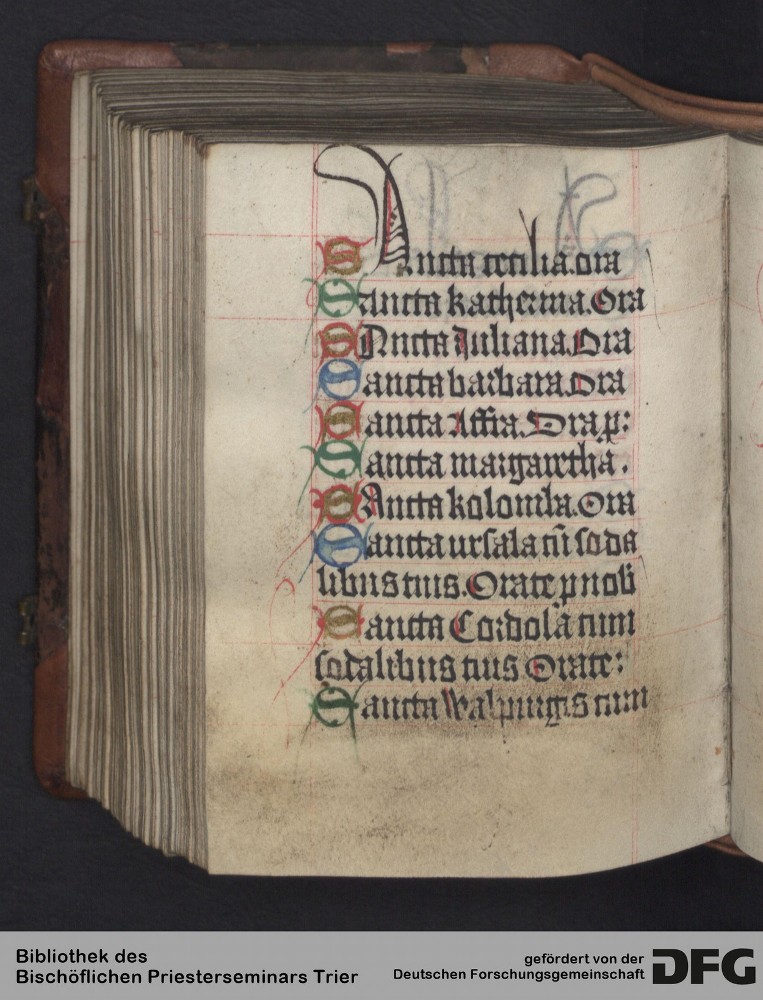 SAncta cecilia. ora
Sancta katherina. Ora
SAncta Iuliana. Ora
Sancta barbara. Ora
Sancta Affra. Ora p:
Sancta margaretha.
SAncta kolomba. Ora
Sancta ursala cū soda
libus tuis. Orate p nob
Sancta Cordola cum
sodalibus tuis Orate:
Sancta Walpurgis cum
Bibliothek des
Bischöflichen Priesterseminars Trier
gefördert von der
Deutschen Forschungsgemeinschaft
DFG